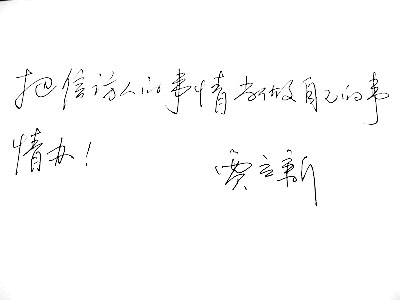 把信访人的事情当做自己的事
情办！ 贾立新